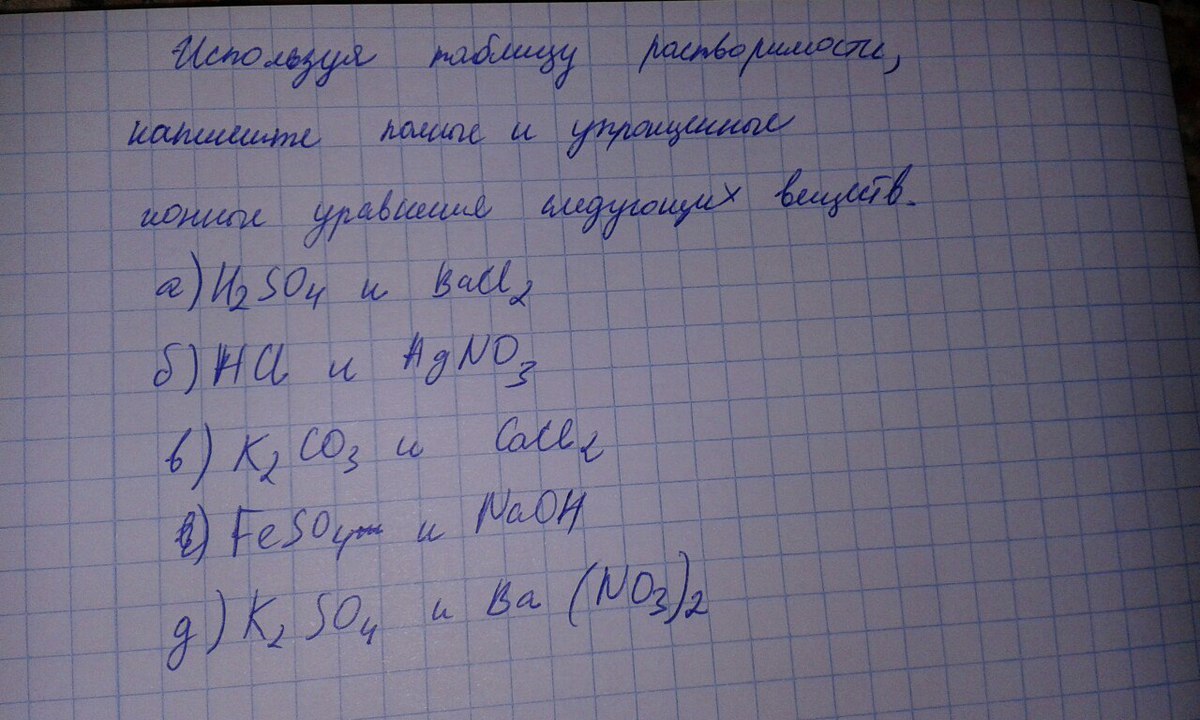 Используя таблицу растворимости,
напишите полные и упрощенные
ионные уравнения следующих веществ.
а) H2SO4 и BaCl2
б) HCl и AgNO3
в) K2CO3 и CaCl2
г) FeSO4 и NaOH
д) K2SO4 и Ba(NO3)2